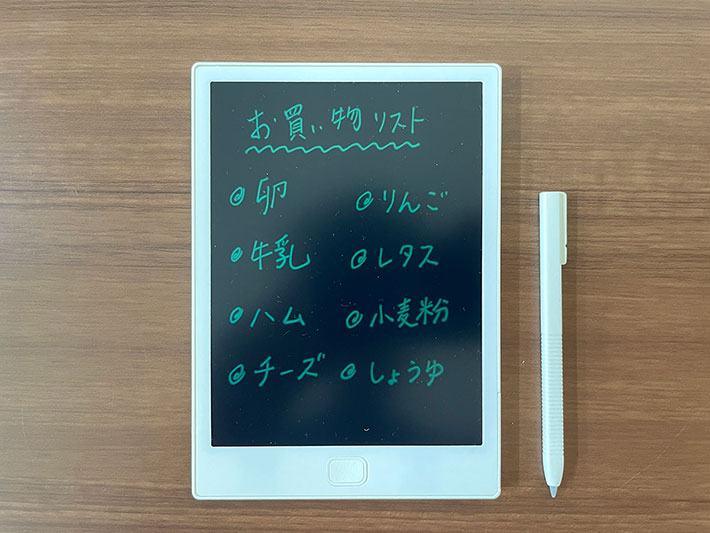 お買い物リスト
卵
りんご
牛乳
レタス
ハム
小麦粉
チーズ
しょうゆ